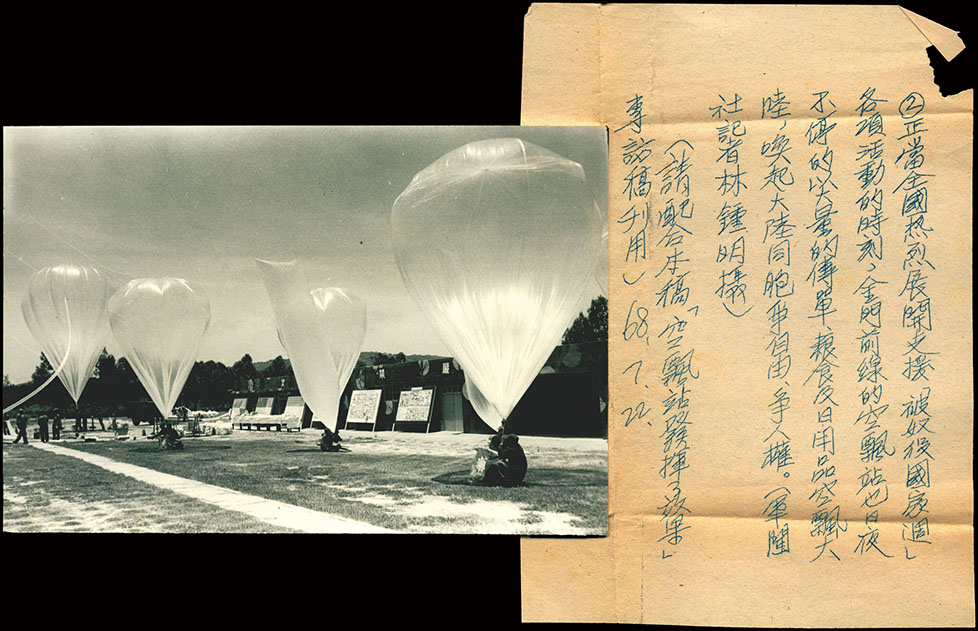 ②正當全國热烈展開支援「被奴役國家週」
各項活動的時刻，金門前線的空飄站也日夜
不停的以大量的傳單、粮食及日用品空飄大
陸，喚起大陸同胞争自由、争人權。（軍聞
社記者林鍾明攝）
（請配合本稿「空飄站發揮了效果」
專訪稿刋用）68.7.22.